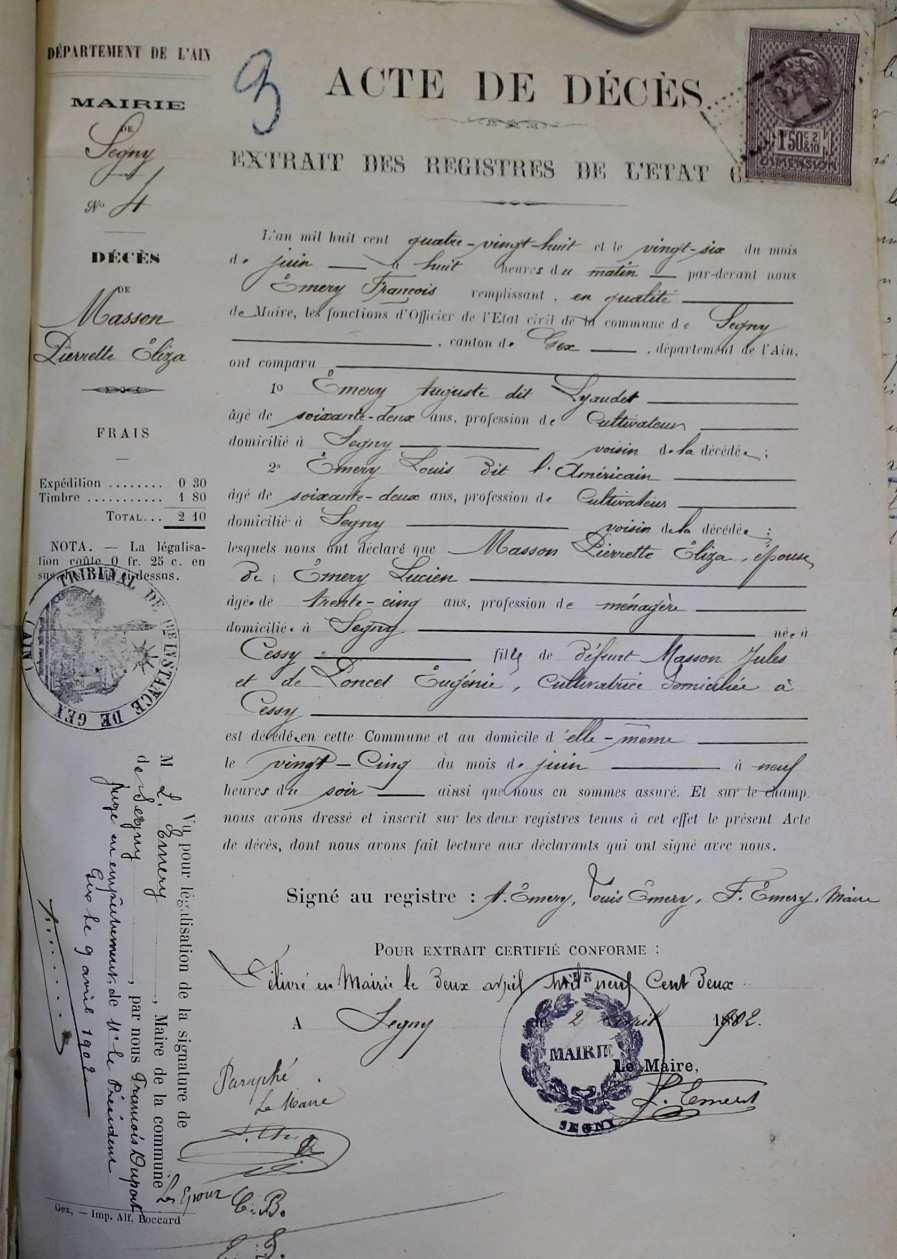 DÉPARTEMENT DE L'AIN
MAIRIE
DE
Segny
No 4
DÉCÈS
DE
Masson
Pierrette Éliza
FRAIS
Expédition ........ 0 30
Timbre ........... 1 80
TOTAL... 2 10
NOTA. — La légalisa-
tion coûte 0 fr. 25 c. en
sus ci-dessus.
TRIBUNAL DE 1RE INSTANCE DE GEX (AIN)
Vu pour légalisation de la signature de
M L. Emery, Maire de la commune
de Segny, par nous François Dupont
juge en empêchement de Mr le Président
Gex le 9 avril 1902
Gex, — Imp. Alf. Boccard
3
ACTE DE DÉCÈS
EXTRAIT DES REGISTRES DE L'ETAT
1F50 c 2 &10
DIMENSION
L'an mil huit cent quatre-vingt-huit et le vingt-six du mois
de juin à huit heures du matin par-devant nous
Émery François remplissant, en qualité
de Maire, les fonctions d'Officier de l'Etat civil de la commune de Segny
, canton de Gex, département de l'Ain,
ont comparu
1o Émery Auguste dit Lyaudet
âgé de soixante-deux ans, profession de Cultivateur
domicilié à Segny voisin de la décédée ;
2o Émery Louis dit l'Américain
âgé de soixante-deux ans, profession de Cultivateur
domicilié à Segny voisin de la décédée ;
lesquels nous ont déclaré que Masson Pierrette Éliza, épouse
de Émery Lucien
âgée de trente-cinq ans, profession de ménagère
domiciliée à Segny née à
Cessy fille de défunt Masson Jules
et de Poncet Eugénie, Cultivatrice domiciliée à
Cessy
est décédée en cette Commune et au domicile d'elle-même
le vingt-Cinq du mois de juin à neuf
heures du soir ainsi que nous en sommes assuré. Et sur le champ
nous avons dressé et inscrit sur les deux registres tenus à cet effet le présent Acte
de décès, dont nous avons fait lecture aux déclarants qui ont signé avec nous.
Signé au registre : A. Émery, Louis Émery, F. Émery, Maire
POUR EXTRAIT CERTIFIÉ CONFORME :
Délivré en Mairie le deux avril mil neuf Cent deux
A Segny le 2 avril 1902.
AIN
MAIRIE
SEGNY
Le Maire,
L. Emery
Paraphé
Le Maire
Les Epoux
C. B.